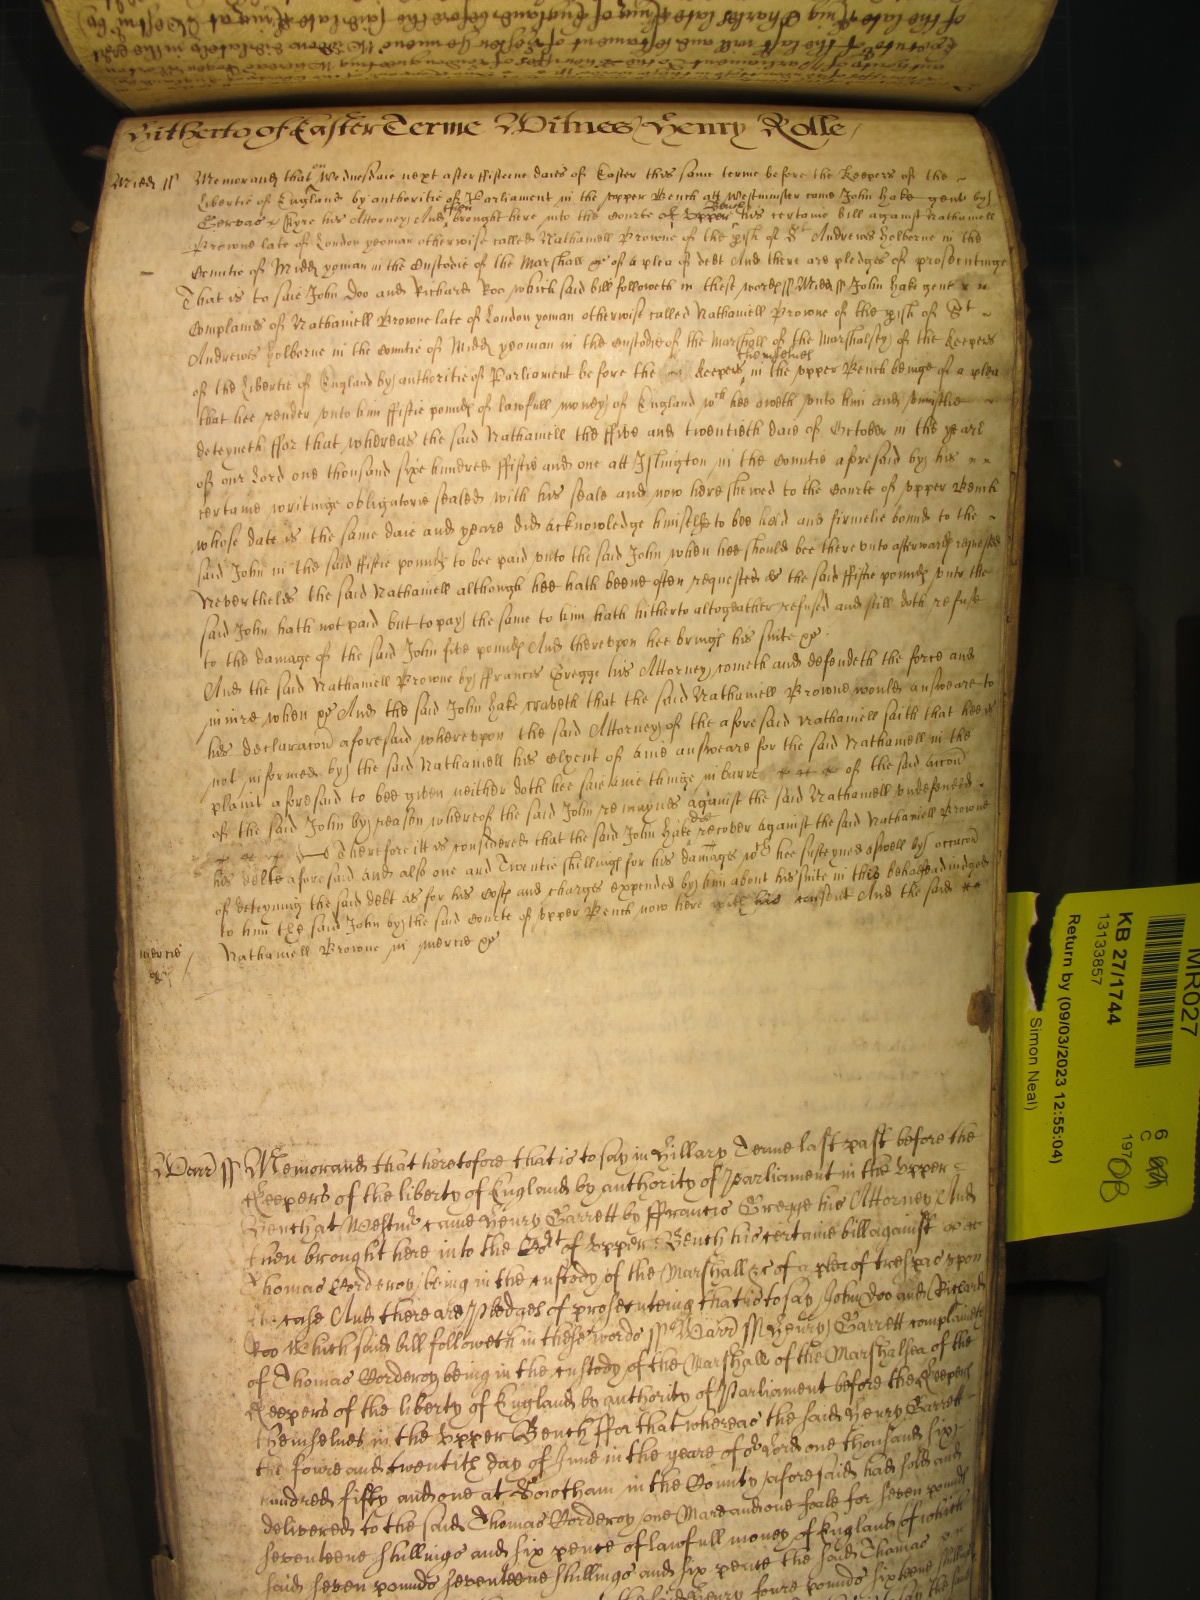 Hitherto of Easter Terme Witnes Henry Rolle
Midd ss Memorand that on Wednesdaie next after ffifteene daies of Easter this same terme before the Keepers of the
Libertie of England by authoritie of Parliament in the vpper Bench att Westminster came John Hake gent by
Gervas Eyre his Attorney And then brought here into the Courte of vpper Bench his certaine bill against Nathaniell
Browne late of London yeoman otherwise called Nathaniell Browne of the pish of St Andrewes Holborne in the
Countie of Midd yoman in the Custodie of the Marshall &c of a plea of debt And there are pledges of prosecutinge
That is to saie John Doo and Richard Roo which said bill followeth in these words ss Midd ss John Hake gent
Complaines of Nathaniell Browne late of London yoman otherwise called Nathaniell Browne of the pish of St
Andrewes Holborne in the Countie of Midd yeoman in the Custodie of the Marshall of the Marshalsey of the Keepers
of the Libertie of England by authoritie of Parliament before the Keepers themselves in the vpper Bench beinge of a plea
that hee render vnto him ffiftie pounds of lawfull money of England wch hee oweth vnto him and vniustlie
deteyneth ffor that whereas the said Nathaniell the ffive and twentieth daie of October in the yeare
of our Lord one thousand sixe hundred ffiftie and one att Islington in the Countie aforesaid by his
certaine writinge obligatorie sealed with his seale and now here shewed to the Courte of vpper Bench
whose date is the same daie and yeare did acknowledge himselfe to bee held and firmelie bound to the
said John in the said ffiftie pounds to bee paid vnto the said John when hee should bee therevnto afterwards requested
Neverthelesse the said Nathaniell although hee hath beene often requested &c the said ffiftie pounds vnto the
said John hath not paid but to pay the same to him hath hitherto altogeather refused and still doth refuse
to the damage of the said John five pounds And therevpon hee brings his suite &c
And the said Nathaniell Browne by ffrancis Gregge his Attorney cometh and defendeth the force and
iniurie when &c And the said John Hake craveth that the said Nathaniell Browne would answeare to
his declaracon aforesaid wherevpon the said Attorney of the aforesaid Nathaniell saith that hee is
not informed by the said Nathaniell his Clyent of anie answeare for the said Nathaniell in the
plaint aforesaid to bee given neither doth hee saie anie thinge in barre of the said accon
of the said John by reason whereof the said John remaynes against the said Nathaniell vndefended
Therefore itt is considered that the said John Hake doe recover against the said Nathaniell Browne
his debte aforesaid and also one and Twentie shillings for his damages wch hee susteyned aswell by occacon
of deteyning the said debt as for his Costs and charges expended by him about his suite in this behalfe adiudged
to him the said John by the said Courte of vpper Bench now here with his consent And the said
mercie &c Nathaniell Browne in mercie &c
Warr ss Memorand that heretofore that is to say in Hillary Terme last past before the
Keepers of the liberty of England by authority of Parliament in the Vpper
Bench at Westmr came Henry Garrett by ffrancis Gregge his Attorney And
then brought here into the Cort of Vpper Bench his certaine bill against
Thomas Corderoy being in the custody of the Marshall &c of a plea of trespas vpon
the case And there are pledges of prosecuteing that is to say John Doo and Richard
Roo Which said bill followeth in these words ss Warr ss Henry Garrett complaineth
of Thomas Corderoy being in the custody of the Marshall of the Marshalsea of the
Keepers of the liberty of England by authority of Parliament before the Keepers
themselues in the Vpper Bench ffor that whereas the said Henry Garrett
the foure and twentith day of June in the yeare of or Lord one thousand six
hundred fifty and one at in the County aforesaid had sold and
delivered to the said Thomas Corderoy one Mare and one foale for seven pounds
seventeene shillings and six pence of lawfull money of England of which
said seven pounds seventeene shillings and six pence the said Thomas
Henry foure pounds sixteene shillings
MR027
KB 27/1744
13133857
Return by (09/03/2023 12:55:04)
Simon Neal)
6
C
197